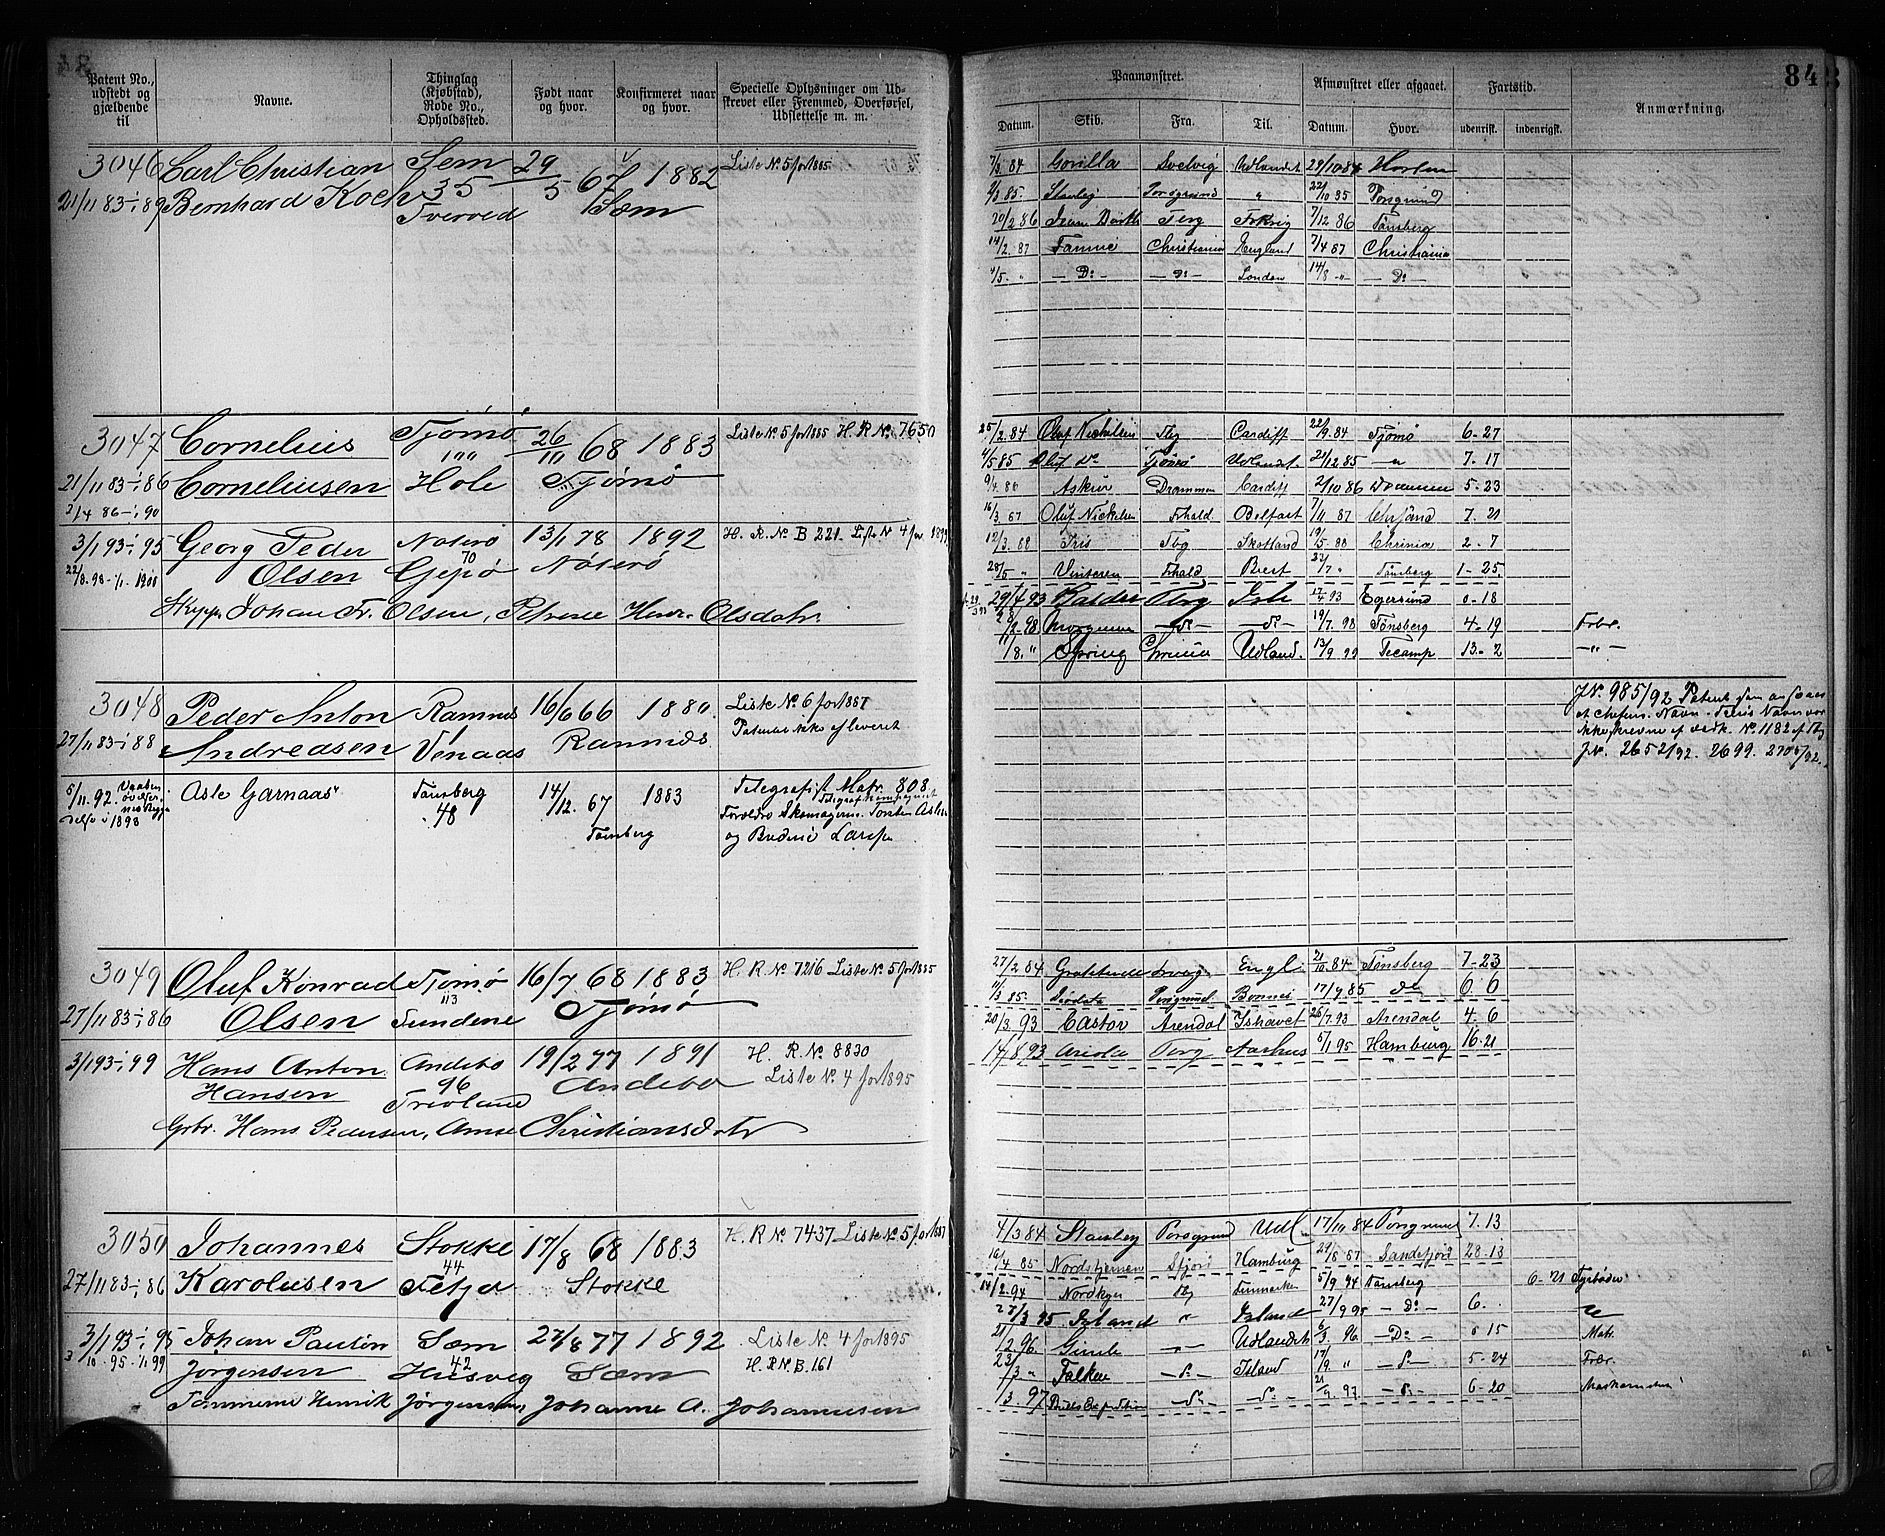 84
Patent No., udstedt og gjældende til
Navne.
Thinglag (Kjøbstad), Rode No., Opholdssted.
Født naar og hvor.
Konfirmeret naar og hvor.
Specielle Oplysninger om Udskrevet eller Fremmed, Overførsel, Udslettelse m. m.
Paamønstret.
Afmønstret eller afgaaet.
Fartstid.
Anmærkning.
Datum. Skib. Fra. Til. Datum. Hvor. udenrigsk. indenrigsk.
3046 Carl Christian Sem 29/5 67 1882 Liste No. 5 for 1885
21/11 83-1/1 89 Bernhard Koch 35 Sem
Tverved
7/3 84 Gorilla Svelvig Udlandet 29/10 84 Horten
2/3 85 Stanley Porsgrund " 22/10 85 Porsgrund
20/2 86 Tbrg 7/12 86 Tønsberg
14/2 87 Fannie Christiania England 7/4 87 Christiania
4/5 " Do Do London 14/8 " Do
3047 Cornelius Tjømø 26/10 68 1883 Liste No. 5 for 1885 H. R. No. 7650
21/11 83-1/1 86 Corneliusen Hole Tjømø
2/4 86-1/1 90
25/2 84 Oluf Nickelsen Tbg Cardiff 22/9 84 Tjømø 6-27
4/5 85 Oluf Do Tjømø Udlandet 21/12 85 " 7-17
9/4 86 Askur Drammen Cardiff 2/10 86 Drammen 5-23
16/3 87 Oluf Nickelsen Frhald Belfast 7/11 87 Chrsand 7-21
12/3 88 Iris Tbg Skotland 19/5 88 Chrinia 2-7
28/5 " Frhald Brest 22/7 " Tønsberg 1-25
3/1 93-1/1 95 Georg Peder Nøterø 13/1 78 1892 H. R. No. B 221 Liste No 4 for 1899
22/8 98-1/1 1900 Olsen 70 Gipø Nøterø
Skipp. Johan Fr. Olsen, Petrine Henr. Olsdatr.
Balder Tbrg Ish 17/4 93 Egersund 0-18
Morgenen Do Do 19/7 98 Tønsberg 4-19 Frbr.
11/8 " Spring Chrinia Udland. 13/9 99 Fecamp 13-2 "
3048 Peder Anton Ramnes 16/6 66 1880 Liste No. 6 for 1887
27/11 83-1/1 88 Andreasen Venaas Ramnes Patentet ikke afleveret
J.No. 985/92 Patent
J.No. 2652/92. 2699. 2705/92.
5/11 92 Vaabenøvelser Asle Garnaas Tønsberg 14/12 67 1883 Telegrafist Matr. 808
48 Tønsberg Telegrafkompagniet
1893 Forældre Skomagerm. Torsten Aslesen
og Larsen
3049 Oluf Konrad Tjømø 16/7 68 1883 H. R. No. 7216 Liste No. 5 for 1885
27/11 83-1/1 86 Olsen 113 Sundene Tjømø
27/2 84 Engl 21/10 84 Tønsberg 7-23
11/3 85 Porsgrund 17/9 85 Do 6. 0
20/3 93 Castor Arendal Ishavet 26/7 93 Arendal 4. 6
14/8 93 Ariola Tbrg Aarhus 5/1 95 Hamburg 16-21
3/1 93-1/1 99 Hans Anton Andebo 19/2 77 1891 H. R. No. 8830
Hansen 96 Trevland Andebo Liste No. 4 for 1895
Gbr. Hans Pedersen, Anne Christiansdatr
3050 Johannes Stokke 17/8 68 1883 H. R. No. 7437 Liste No. 5 for 1887
27/11 83-1/1 86 Karolusen 44 Fetja Stokke
4/3 84 Stanley Porsgrund Udl 17/10 84 Porsgrund 7. 13
16/4 85 Nordstjernen Sfjord Hamburg 29/8 87 Sandefjord 28-13
14/2 94 Nordkyn Tbg Finmarken 5/9 94 Tønsberg 6-21 Fyrbøder
27/3 95 Island " Island 27/9 95 Do 6.
3/1 93-1/1 95 Johan Paulin Sem 27/8 77 1892 Liste No. 4 for 1895
3/10 95-1/1 99 Jørgensen 42 Husvig Sem H. R. No B. 161
Tømmermd Henrik Jørgensen, Johanne A. Johannesen
21/2 96 Gimle " Udlandet 6/3 96 Do 0 15 Matr.
23/3 " Falken Do Island 17/9 " Do 5-24 Frbr.
/3 97 Do Do 21/9 97 Do 6-20